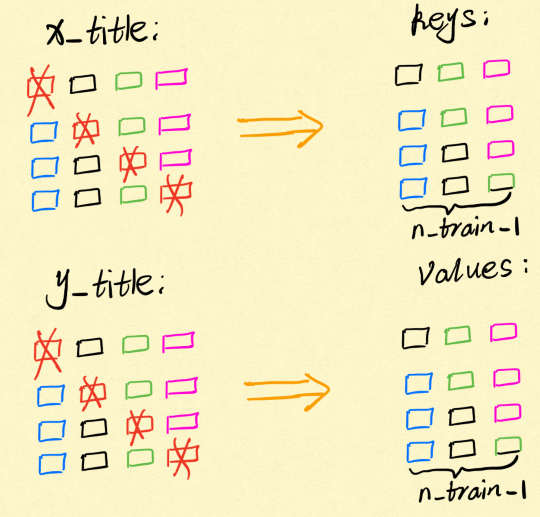 x_title:
keys:
n_train_1
y_title:
values:
n_train_1